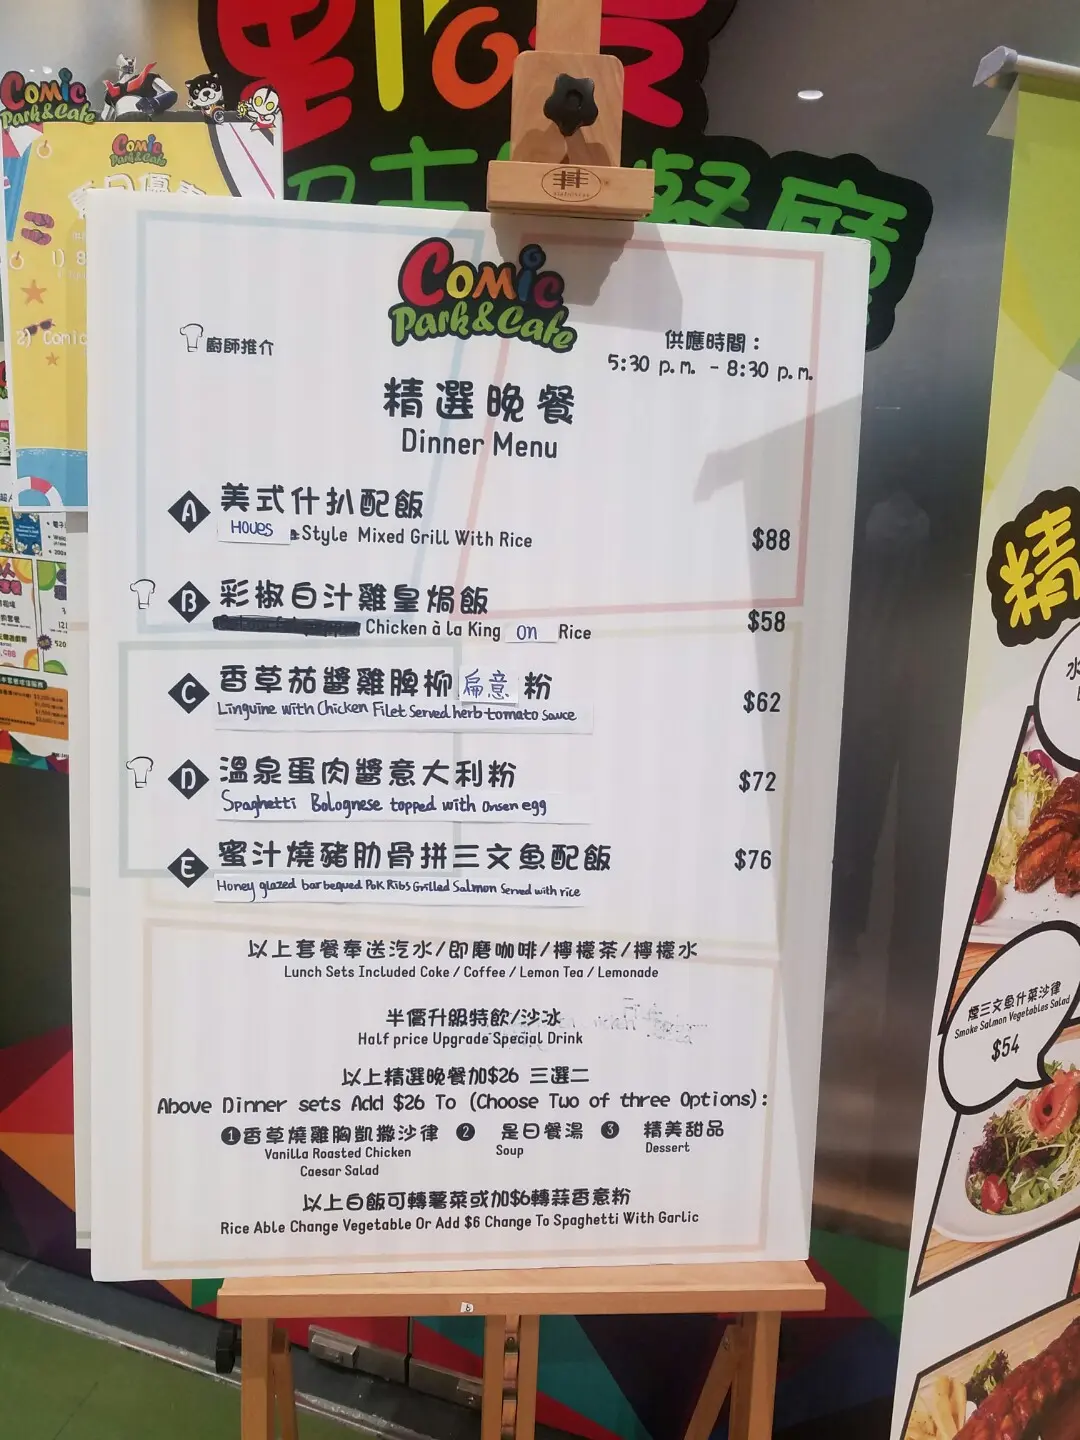 Comic
Park & Cafe
Comic
Park & Cafe
餐廳
Comic
Park & Cafe
廚師推介
供應時間：
5:30 p.m. - 8:30 p.m.
精選晚餐
Dinner Menu
A 美式什扒配飯
Houes Style Mixed Grill With Rice
$88
B 彩椒白汁雞皇焗飯
Chicken à la King on Rice
$58
C 香草茄醬雞脾柳扁意粉
Linguine with Chicken Filet Served herb tomato sauce
$62
D 溫泉蛋肉醬意大利粉
Spaghetti Bolognese topped with onsen egg
$72
E 蜜汁燒豬肋骨拼三文魚配飯
Honey glazed barbequed Pok Ribs Grilled Salmon Served with rice
$76
以上套餐奉送汽水/即磨咖啡/檸檬茶/檸檬水
Lunch Sets Included Coke / Coffee / Lemon Tea / Lemonade
半價升級特飲/沙冰
Half price Upgrade Special Drink
以上精選晚餐加$26 三選二
Above Dinner sets Add $26 To (Choose Two of three Options):
❶香草燒雞胸凱撒沙律 ❷ 是日餐湯 ❸ 精美甜品
Vanilla Roasted Chicken Caesar Salad
Soup
Dessert
以上白飯可轉薯菜或加$6轉蒜香意粉
Rice Able Change Vegetable Or Add $6 Change To Spaghetti With Garlic
精
水
煙三文魚什菜沙律
Smoke Salmon Vegetables Salad
$54